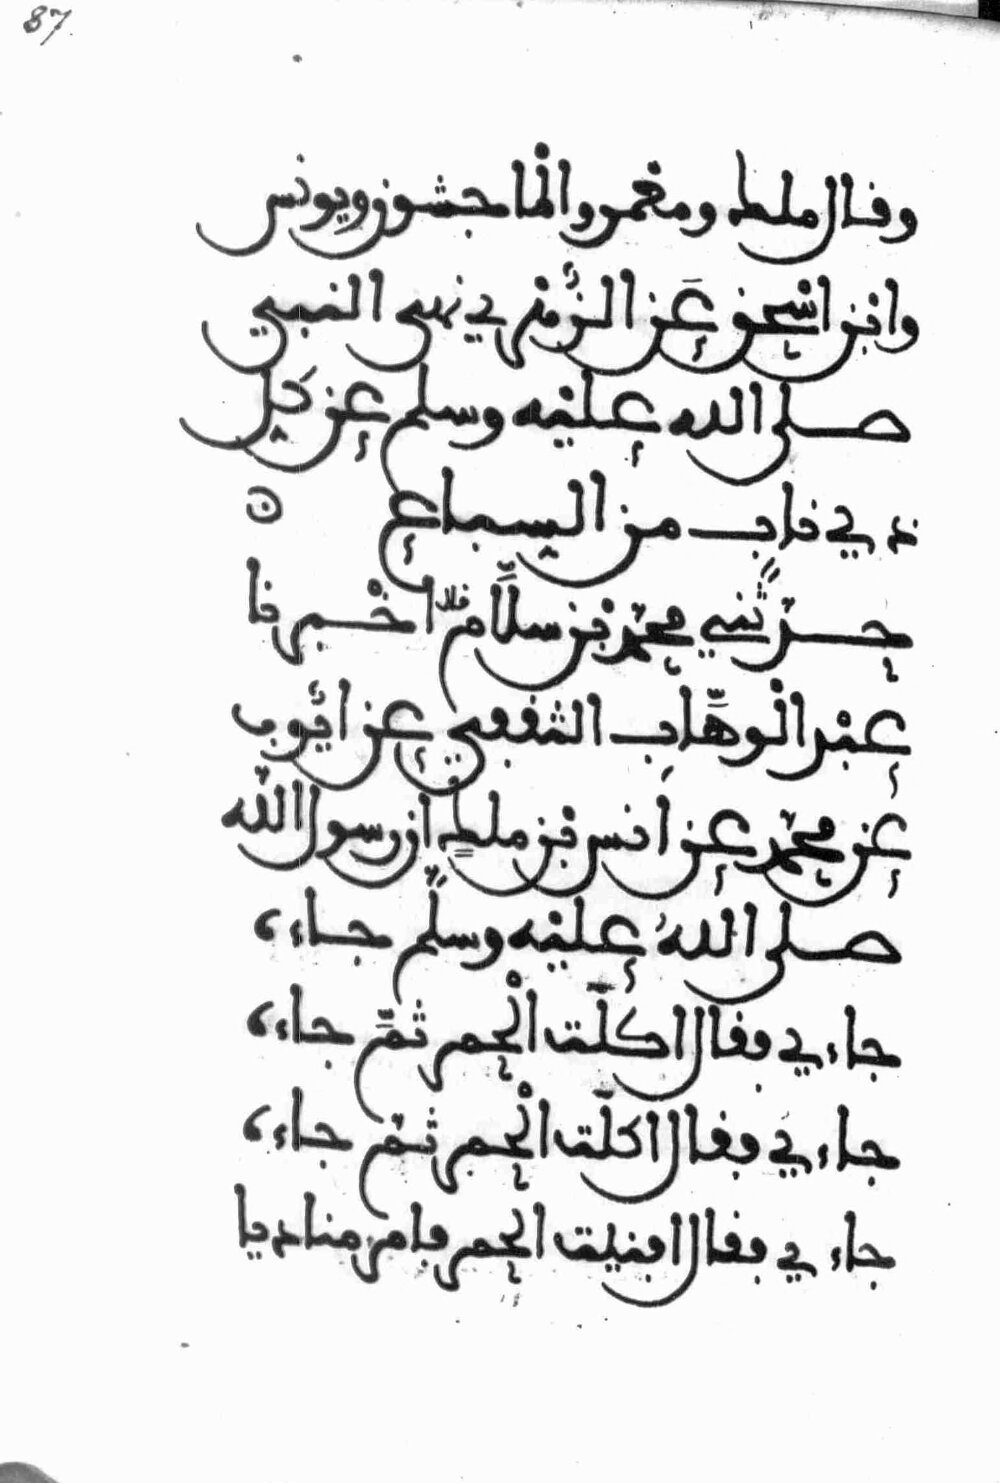 87
وقال ملك ومعمر والماجشون ويونس
وابن اسحق عن الزهري نهى النبي
صلى الله عليه وسلم عن كل
ذي ناب من السباع ن
حدثني محمد بن سلام قال اخبرنا
عبد الوهاب الثقفي عن ايوب
عن محمد عن انس بن ملك ان رسول الله
صلى الله عليه وسلم جاءه
جاءي فقال اكلت الحمر ثم جاءه
جاءي فقال اكلت الحمر ثم جاءه
جاءي فقال افنيت الحمر فامر مناديا